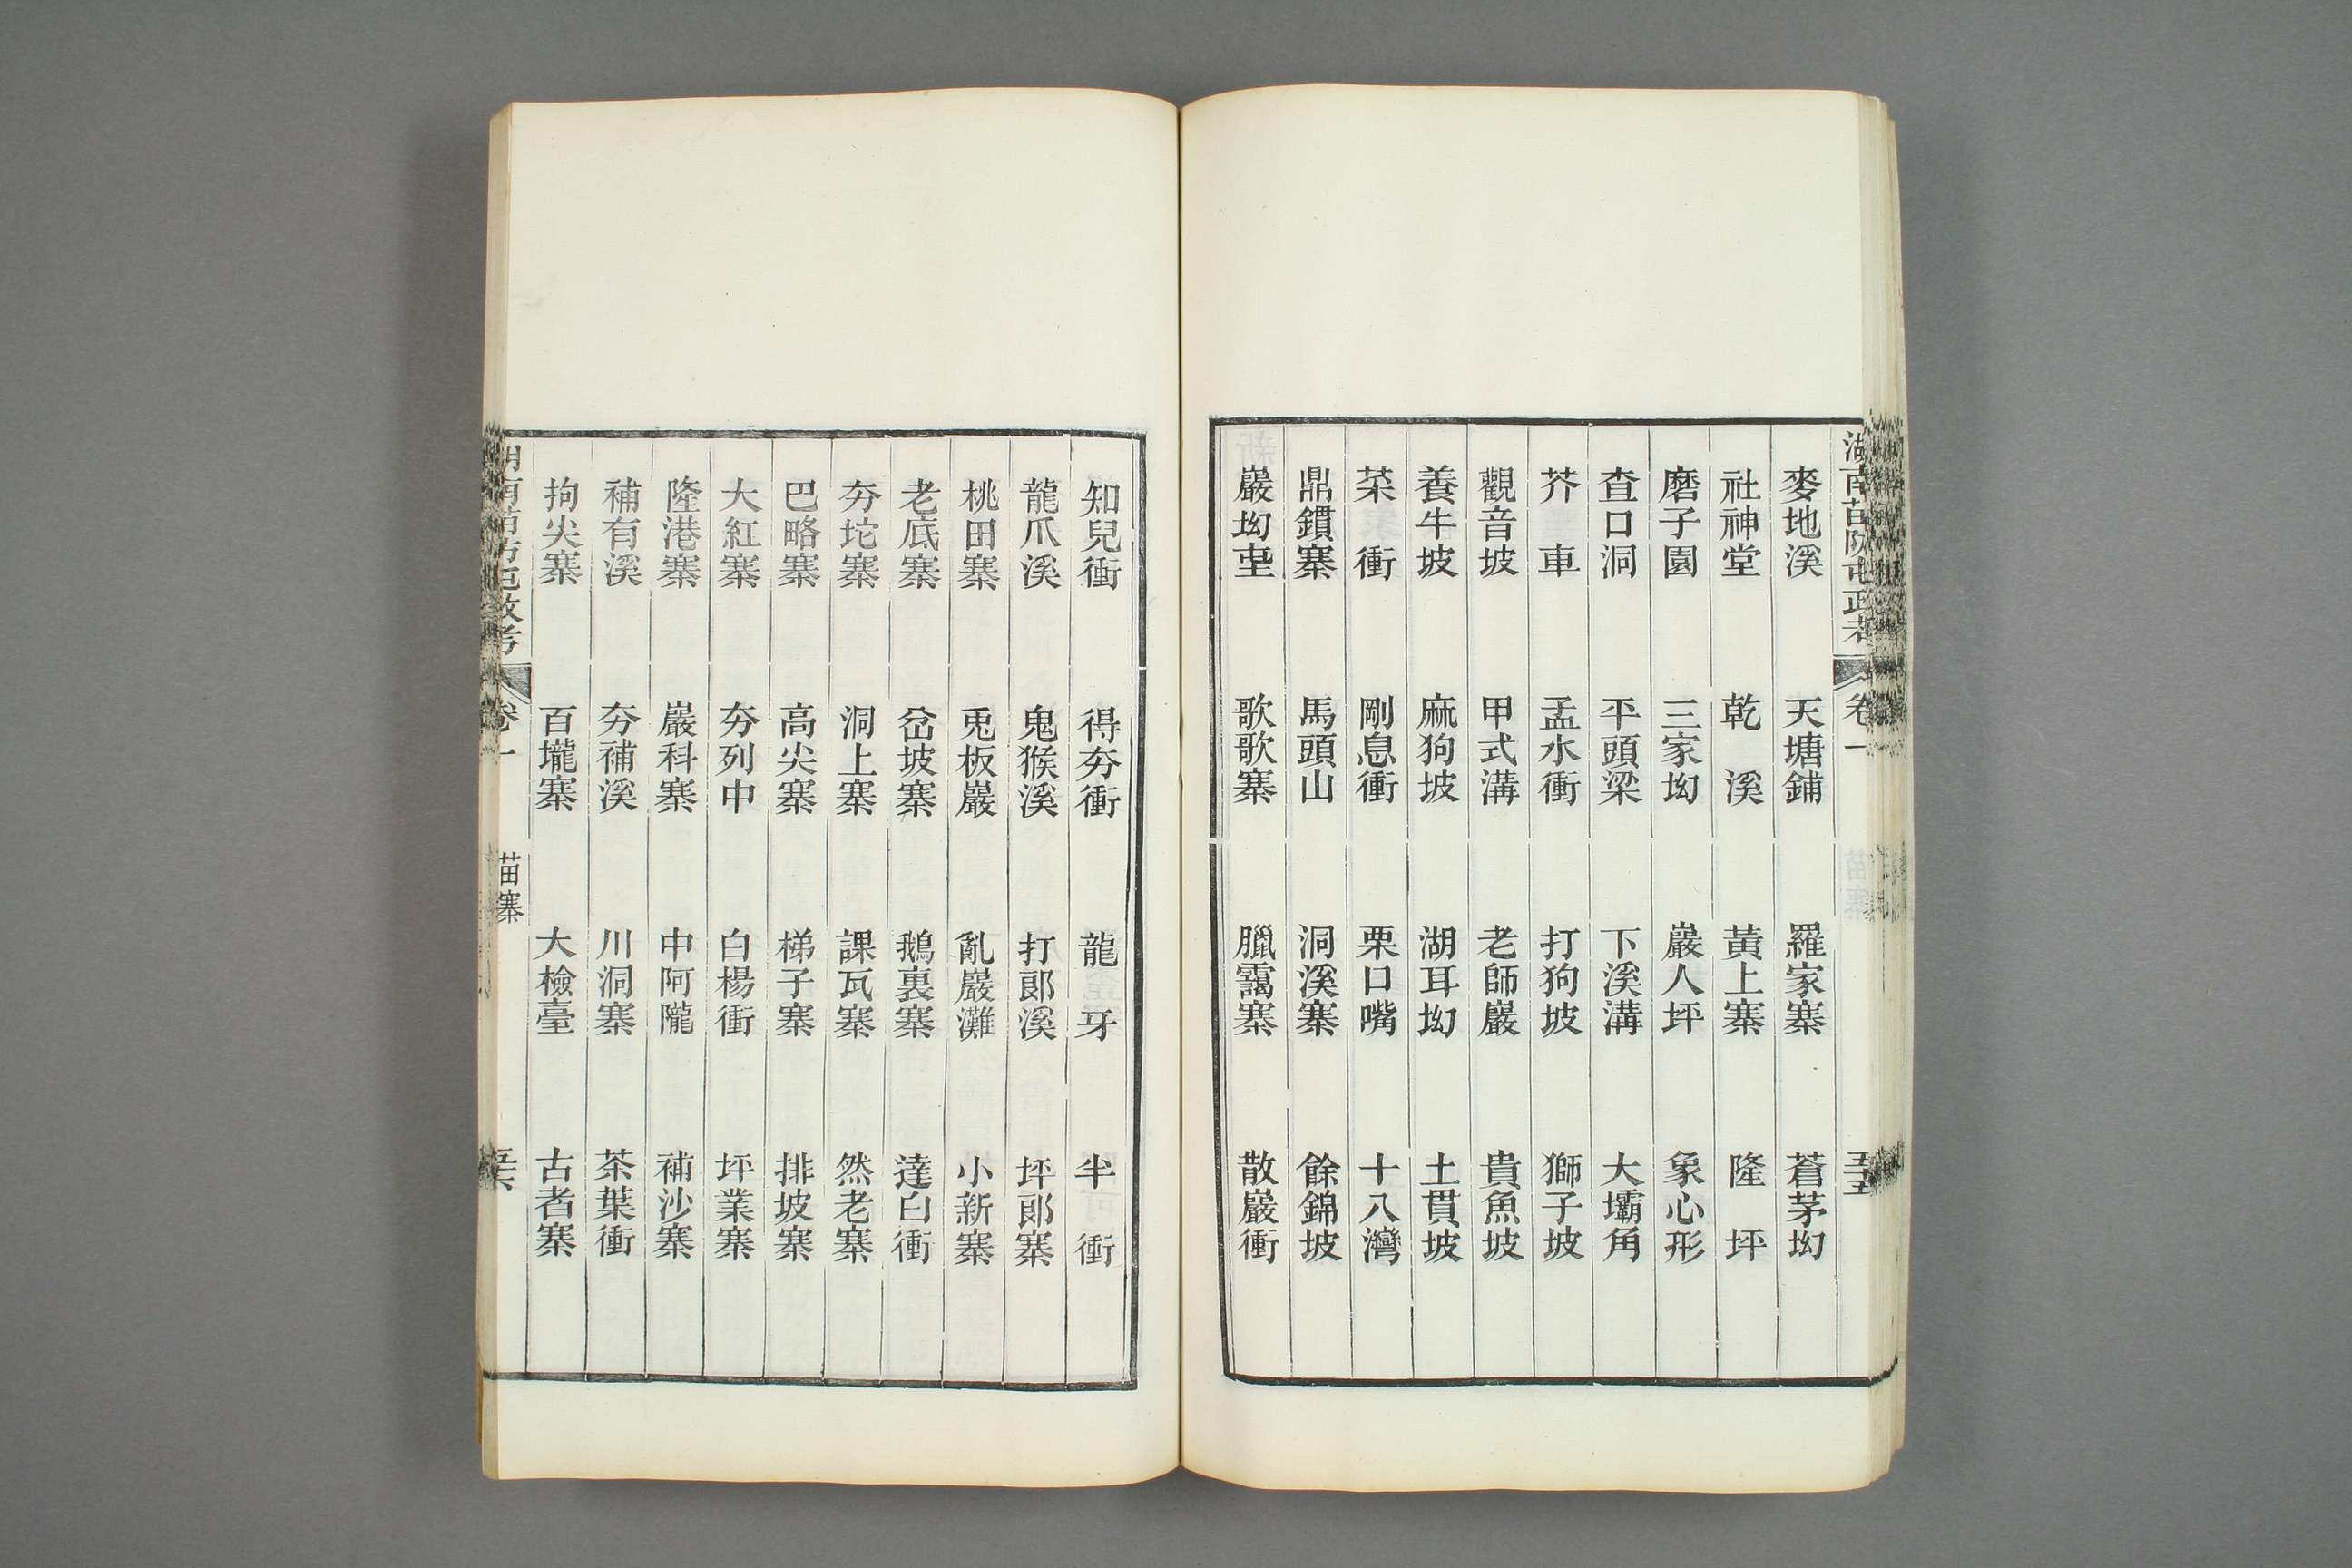 湖南苗防屯政考 卷一 五十五
麥地溪 天塘鋪 羅家寨 蒼茅坳
社神堂 乾溪 黃上寨 隆坪
磨子園 三家坳 巖人坪 象心形
查口洞 平頭梁 下溪溝 大壩角
芥車 孟水衝 打狗坡 獅子坡
觀音坡 甲式溝 老師巖 貴魚坡
養牛坡 麻狗坡 湖耳坳 土貫坡
菜衝 剛息衝 栗口嘴 十八灣
鼎鑵寨 馬頭山 洞溪寨 餘錦坡
巖坳 歌歌寨 臘靄寨 散巖衝
知兒衝 得夯衝 龍牙 半衝
龍爪溪 鬼猴溪 打郎溪 坪郎寨
桃田寨 兎板巖 亂巖灘 小新寨
老底寨 岔坡寨 鵝裏寨 達白衝
夯坨寨 洞上寨 課瓦寨 然老寨
巴略寨 高尖寨 梯子寨 排坡寨
大紅寨 夯列中 白楊衝 坪業寨
隆港寨 巖科寨 中阿隴 補沙寨
補有溪 夯補溪 川洞寨 茶葉衝
拘尖寨 百壠寨 大檢臺 古者寨
湖南苗防屯政考 卷一 苗寨 五十六